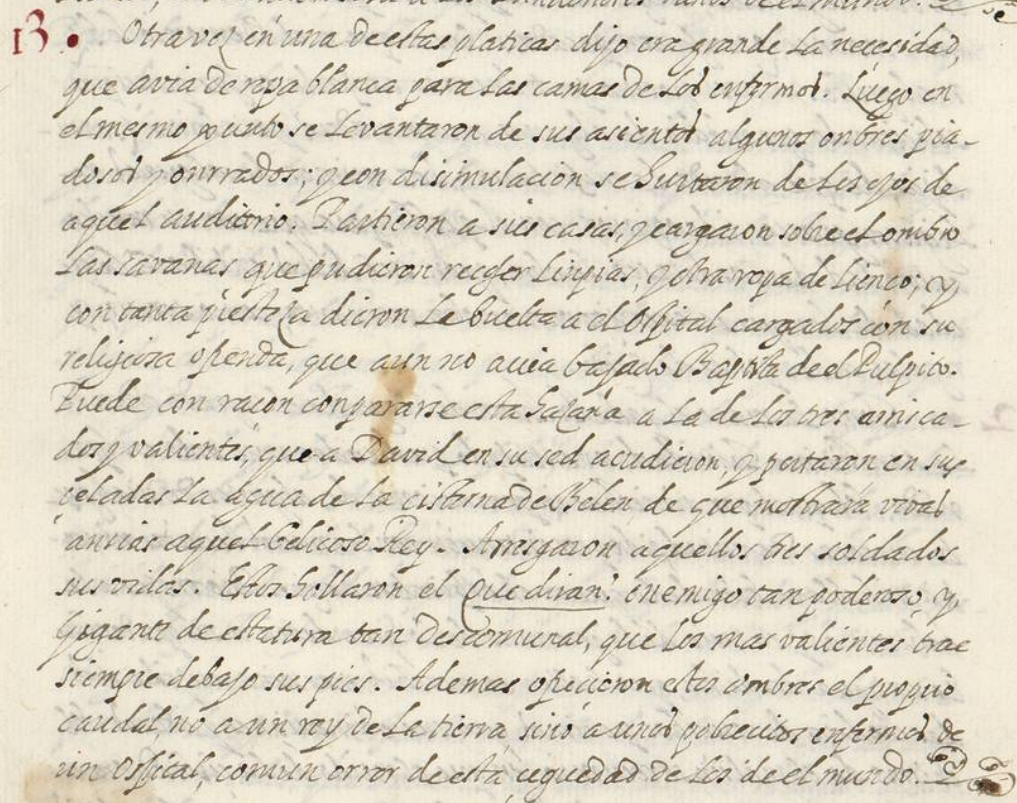 13. Otra vez en una de estas platicas dijo era grande la necesidad,
que avia de ropa blanca para las camas de los enfermos. Luego en
el mesmo punto se levantaron de sus asientos algunos onbres pia-
dosos y onrrados; y con disimulacion se hurtaron de los ojos de
aquel auditorio. Partieron a sus casas, y cargaron sobre el ombro
las savanas que pudieron recojer linpias, y otra ropa de lienço; y
con tanta presteza dieron la buelta a el Ospital cargados con su
religiosa ofrenda, que aun no avia bajado Baptista de el Pulpito.
Puede con racon conpararse esta haçaña a la de los tres
dos y valientes, que a David en su sed acudieron, y portaron en sus
celadas la agua de la cisterna de Belen de que mostrava vivas
ansias aquel belicoso Rey. Arresgaron aquellos tres soldados
sus vidas. Estos hollaron el que diran: enemigo tan poderoso, y
gigante de estatura tan descomunal, que los mas valientes trae
siempre debajo sus pies. Ademas ofrecieron estos ombres el propio
caudal, no a un rey de la tierra, sino a unos pobrecitos enfermos de
un Ospital, comun error de esta ceguedad de los de el mundo.